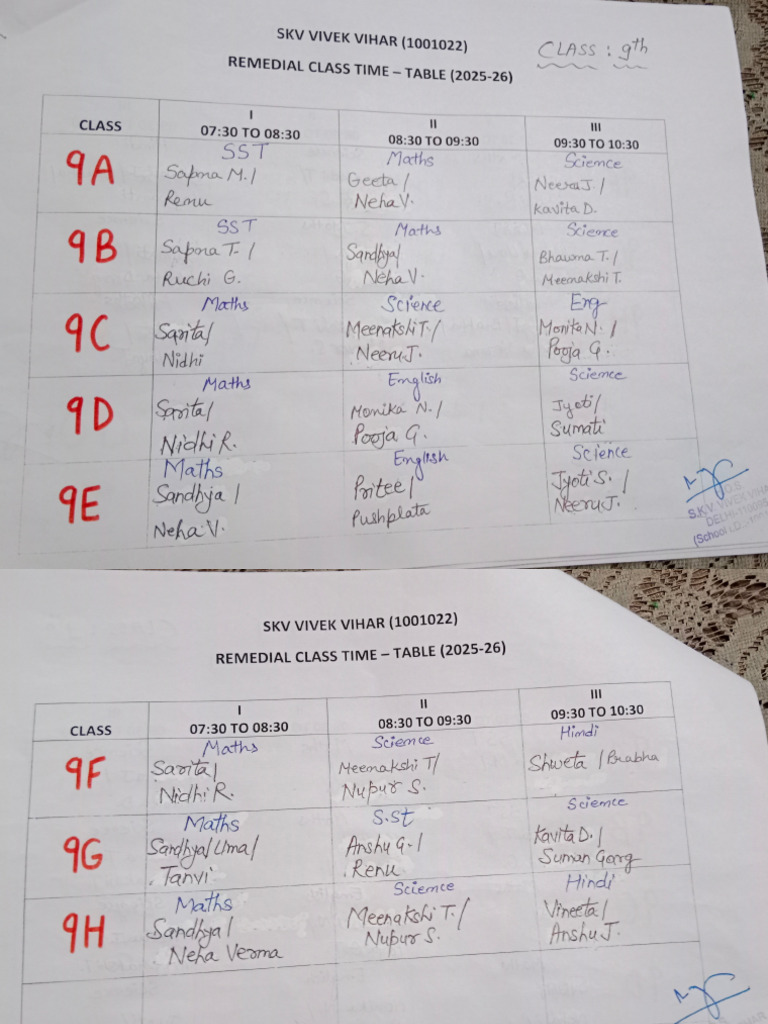 SKV VIVEK VIHAR (1001022)
CLASS : 9th
REMEDIAL CLASS TIME – TABLE (2025-26)
CLASS
I
07:30 TO 08:30
II
08:30 TO 09:30
III
09:30 TO 10:30
9A
SST
Sapna M. /
Renu
Maths
Geeta /
Neha V.
Science
Neeru J. /
Kavita D.
9B
SST
Sapna T. /
Ruchi G.
Maths
Sandhya /
Neha V.
Science
Bhawna T. /
Meenakshi T.
9C
Maths
Sarita /
Nidhi
Science
Meenakshi T. /
Neeru J.
Eng
Monika N. /
Pooja G.
9D
Maths
Sarita /
Nidhi R.
English
Monika N. /
Pooja G.
Science
Jyoti /
Sumati
9E
Maths
Sandhya /
Neha V.
English
Pritee /
Pushplata
Science
Jyoti S. /
Neeru J.
S.K.V. VIVEK VIHAR
DELHI-110095
(School I.D.
SKV VIVEK VIHAR (1001022)
REMEDIAL CLASS TIME – TABLE (2025-26)
CLASS
I
07:30 TO 08:30
II
08:30 TO 09:30
III
09:30 TO 10:30
9F
Maths
Sarita /
Nidhi R.
Science
Meenakshi T /
Nupur S.
Hindi
Shweta / Prabha
9G
Maths
Sandhya / Uma /
Tanvi
S.St
Anshu G. /
Renu
Science
Kavita D. /
Suman Garg
9H
Maths
Sandhya /
Neha Verma
Science
Meenakshi T. /
Nupur S.
Hindi
Vineeta /
Anshu J.